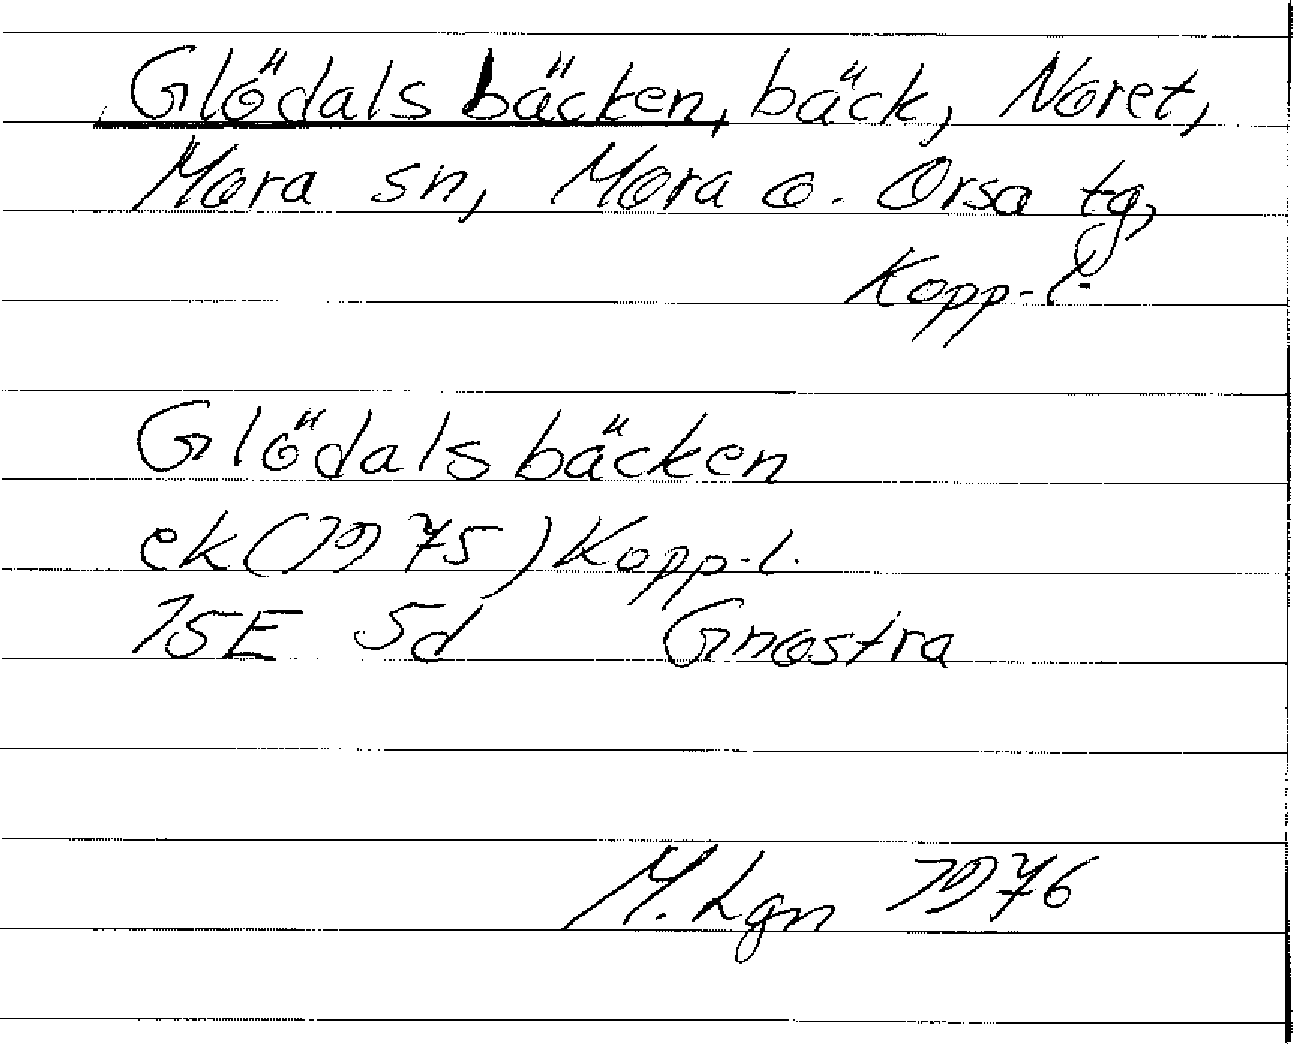 Glödalsbäcken, bäck, Noret,
Mora sn, Mora o. Orsa tg,
Kopp-l.
Glödalsbäcken
ek (1975) Kopp-l.
15E 5d Gnostra
M. Lgn 1976